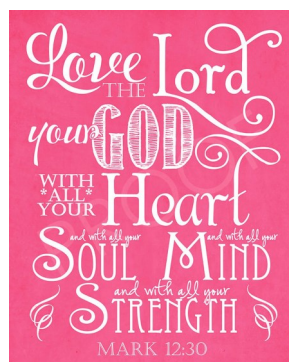 Love THE Lord
your GOD
WITH *ALL* YOUR Heart
and with all your SOUL and with all your MIND
and with all your STRENGTH
MARK 12:30